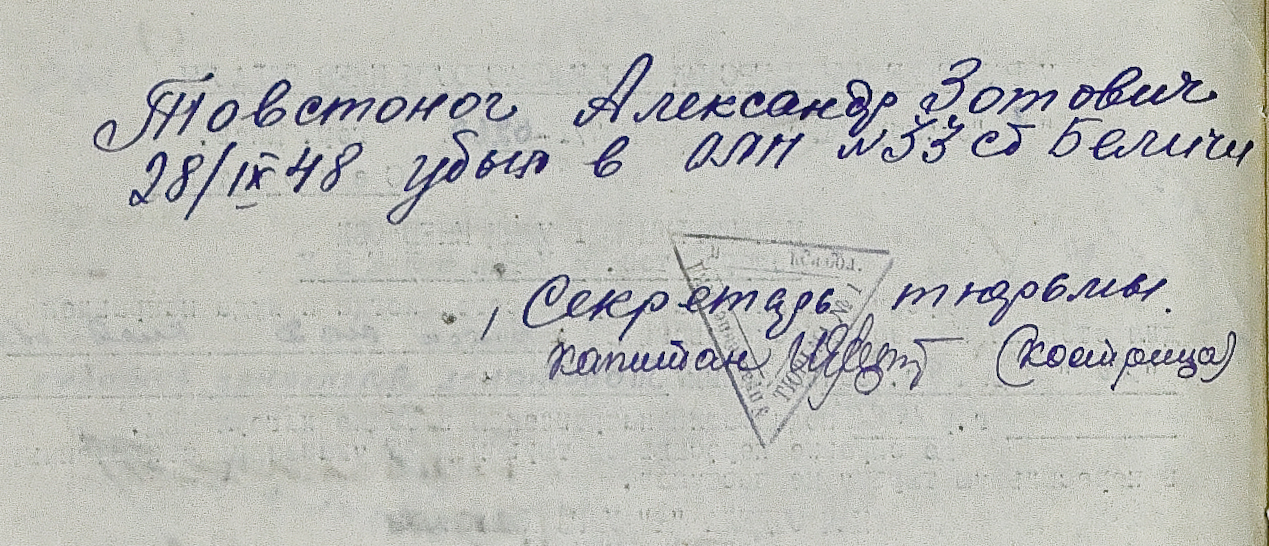 Товстоног Александр Зотович
28/IX 48 убыл в ОЛП №33 ст Беличи
Секретарь тюрьмы
капитан (Кострица)
Тюрьма №1